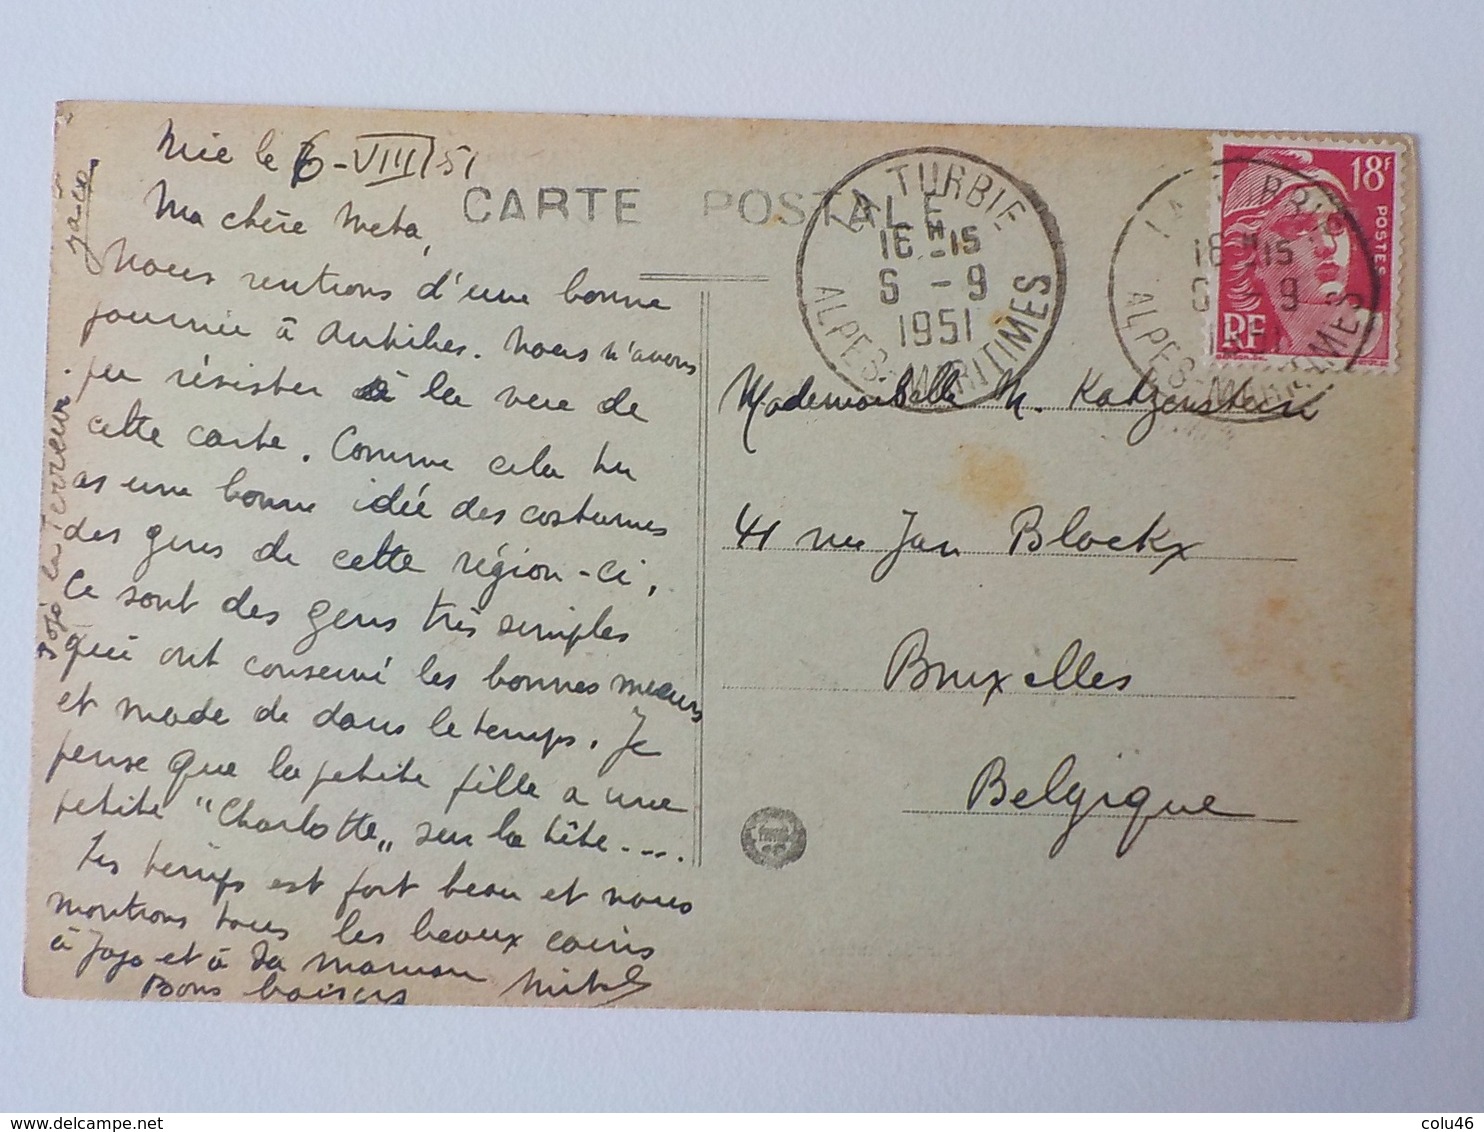 Nice le 6-VIII 51
Ma chère Meta,
Nous rentrons d'une bonne
journée à Antibes. Nous n'avons
pu résister à la vue de
cette carte. Comme cela tu
as une bonne idée des costumes
des gens de cette région-ci.
Ce sont des gens très simples
qui ont conservé les bonnes mœurs
et mode de dans le temps. Je
pense que la petite fille a une
petite "Charlotte" sur la tête ....
Les temps est fort beau et nous
montrons tous les beaux coins
à Jojo et à sa maman
Bons baisers
Jojo la Terreur.
CARTE POSTALE
LA TURBIE
16H15
6-9
1951
ALPES-MARITIMES
18F
POSTES
RF
LA TURBIE
16H15
6-9
1951
ALPES-MARITIMES
Mademoiselle M. Katzenstein
41 rue Jan Blockx
Bruxelles
Belgique
delcampe.net
colu46